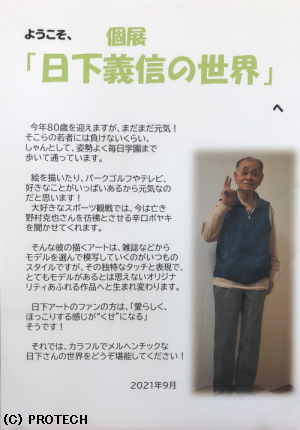 ようこそ、 個展
「日下義信の世界」
へ
今年80歳を迎えますが、まだまだ元気！
そこらの若者には負けないくらい、
しゃんとして、姿勢よく毎日学園まで
歩いて通っています。
絵を描いたり、パークゴルフやテレビ、
好きなことがいっぱいあるから元気なの
だと思います！
大好きなスポーツ観戦では、今は亡き
野村克也さんを彷彿とさせる辛口ボヤキ
を聞かせてくれます。
そんな彼の描くアートは、雑誌などから
モデルを選んで模写していくのがいつもの
スタイルですが、その独特なタッチと表現で、
とてもモデルがあるとは思えないオリジナ
リティあふれる作品へと生まれ変わります。
日下アートのファンの方は、「愛らしく、
ほっこりする感じが“くせ”になる」
そうです！
それでは、カラフルでメルヘンチックな
日下さんの世界をどうぞ堪能してください！
2021年9月
(C) PROTECH